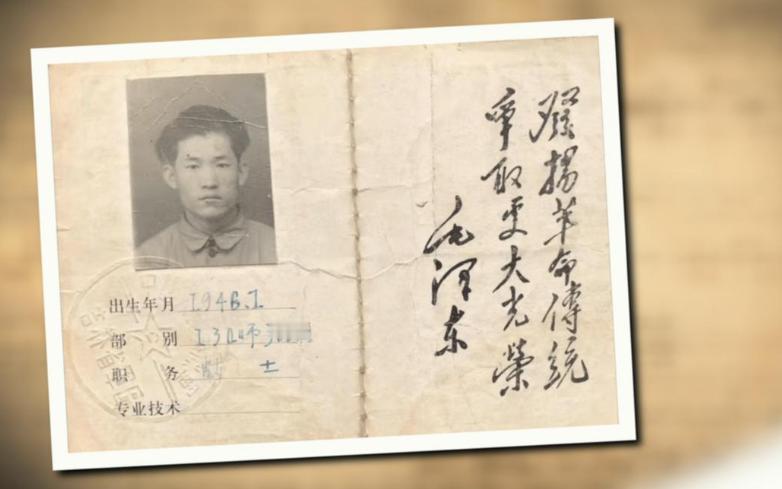 出生年月 1946.1
部别 130师
职务 战士
专业技术
發揚革命傳統
爭取更大光榮
毛泽东